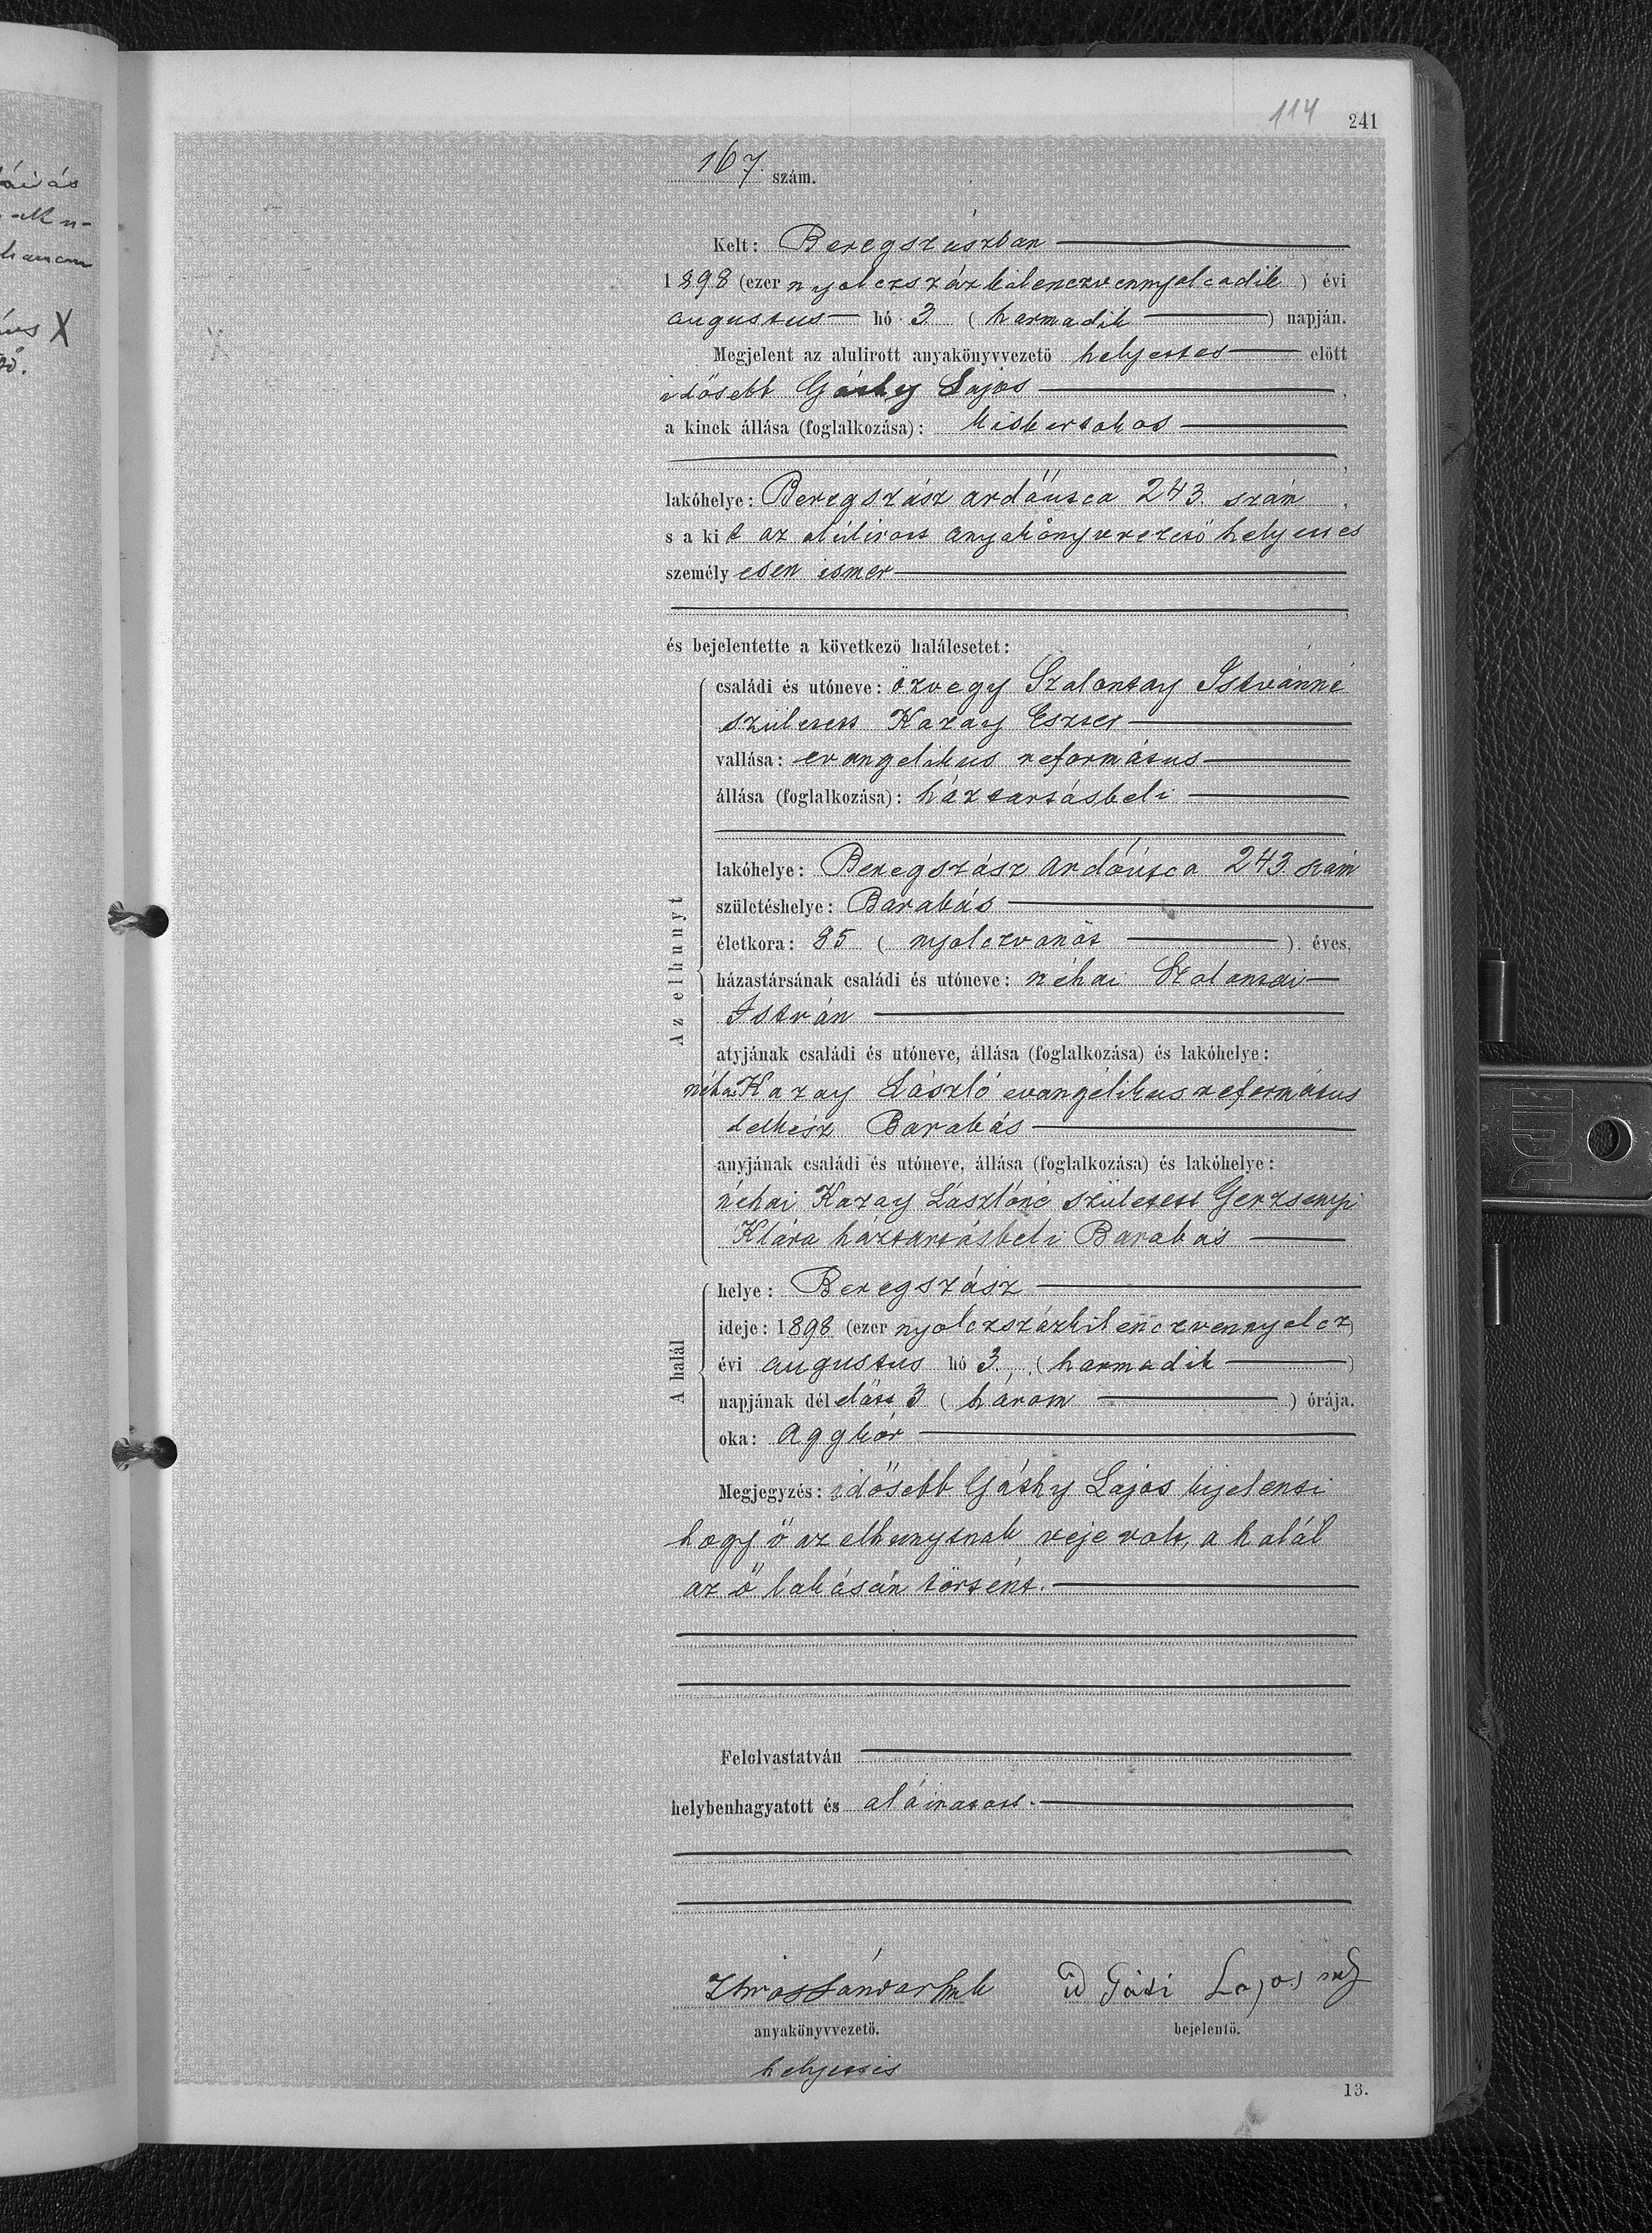 114
241
167. szám.
Kelt: Beregszászban
1898 (ezer nyolczszázkilenczvennyolcadik) évi
augustus hó 3 (harmadik) napján.
Megjelent az alulirott anyakönyvvezető helyettes előtt
idősebb Gáthy Lajos,
a kinek állása (foglalkozása): kisbirtokos
lakóhelye: Beregszász ardóutca 243. szám,
s a kit az alúlirott anyakönyvvezető helyettes
személyesen esmer
és bejelentette a következő halálesetet:
Az elhunyt
családi és utóneve: özvegy Szalontay Istvánné
született Kazay Eszter
vallása: evangelikus református
állása (foglalkozása): háztartásbeli
lakóhelye: Beregszász ardóutca 243. szám
születéshelye: Barabás
életkora: 85 (nyolczvanöt) éves,
házastársának családi és utóneve: néhai Szalontai
István
atyjának családi és utóneve, állása (foglalkozása) és lakóhelye:
néhai Kazay László evangélikus református
lelkész Barabás
anyjának családi és utóneve, állása (foglalkozása) és lakóhelye:
néhai Kazay Lászlóné született Gerzsenyi
Klára háztartásbeli Barabás
A halál
helye: Beregszász
ideje: 1898 (ezer nyolczszázkilenczvennyolcz)
évi augustus hó 3. (harmadik)
napjának délelőtt 3 (három) órája.
oka: Aggkór
Megjegyzés: idősebb Gáthy Lajos kijelenti
hogy ő az elhunytnak veje volt, a halál
az ő lakásán történt.
Felolvastatván
helybenhagyatott és aláiratott.
Sándor
id Gáti Lajos
anyakönyvvezető.
bejelentő.
helyettes
13.